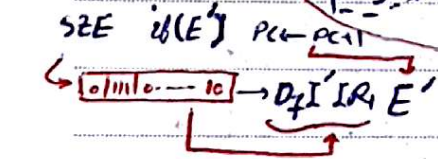 SZE if(E') PC ← PC+1
0111 0 ---- 10 → D₇I'IR₁ E'